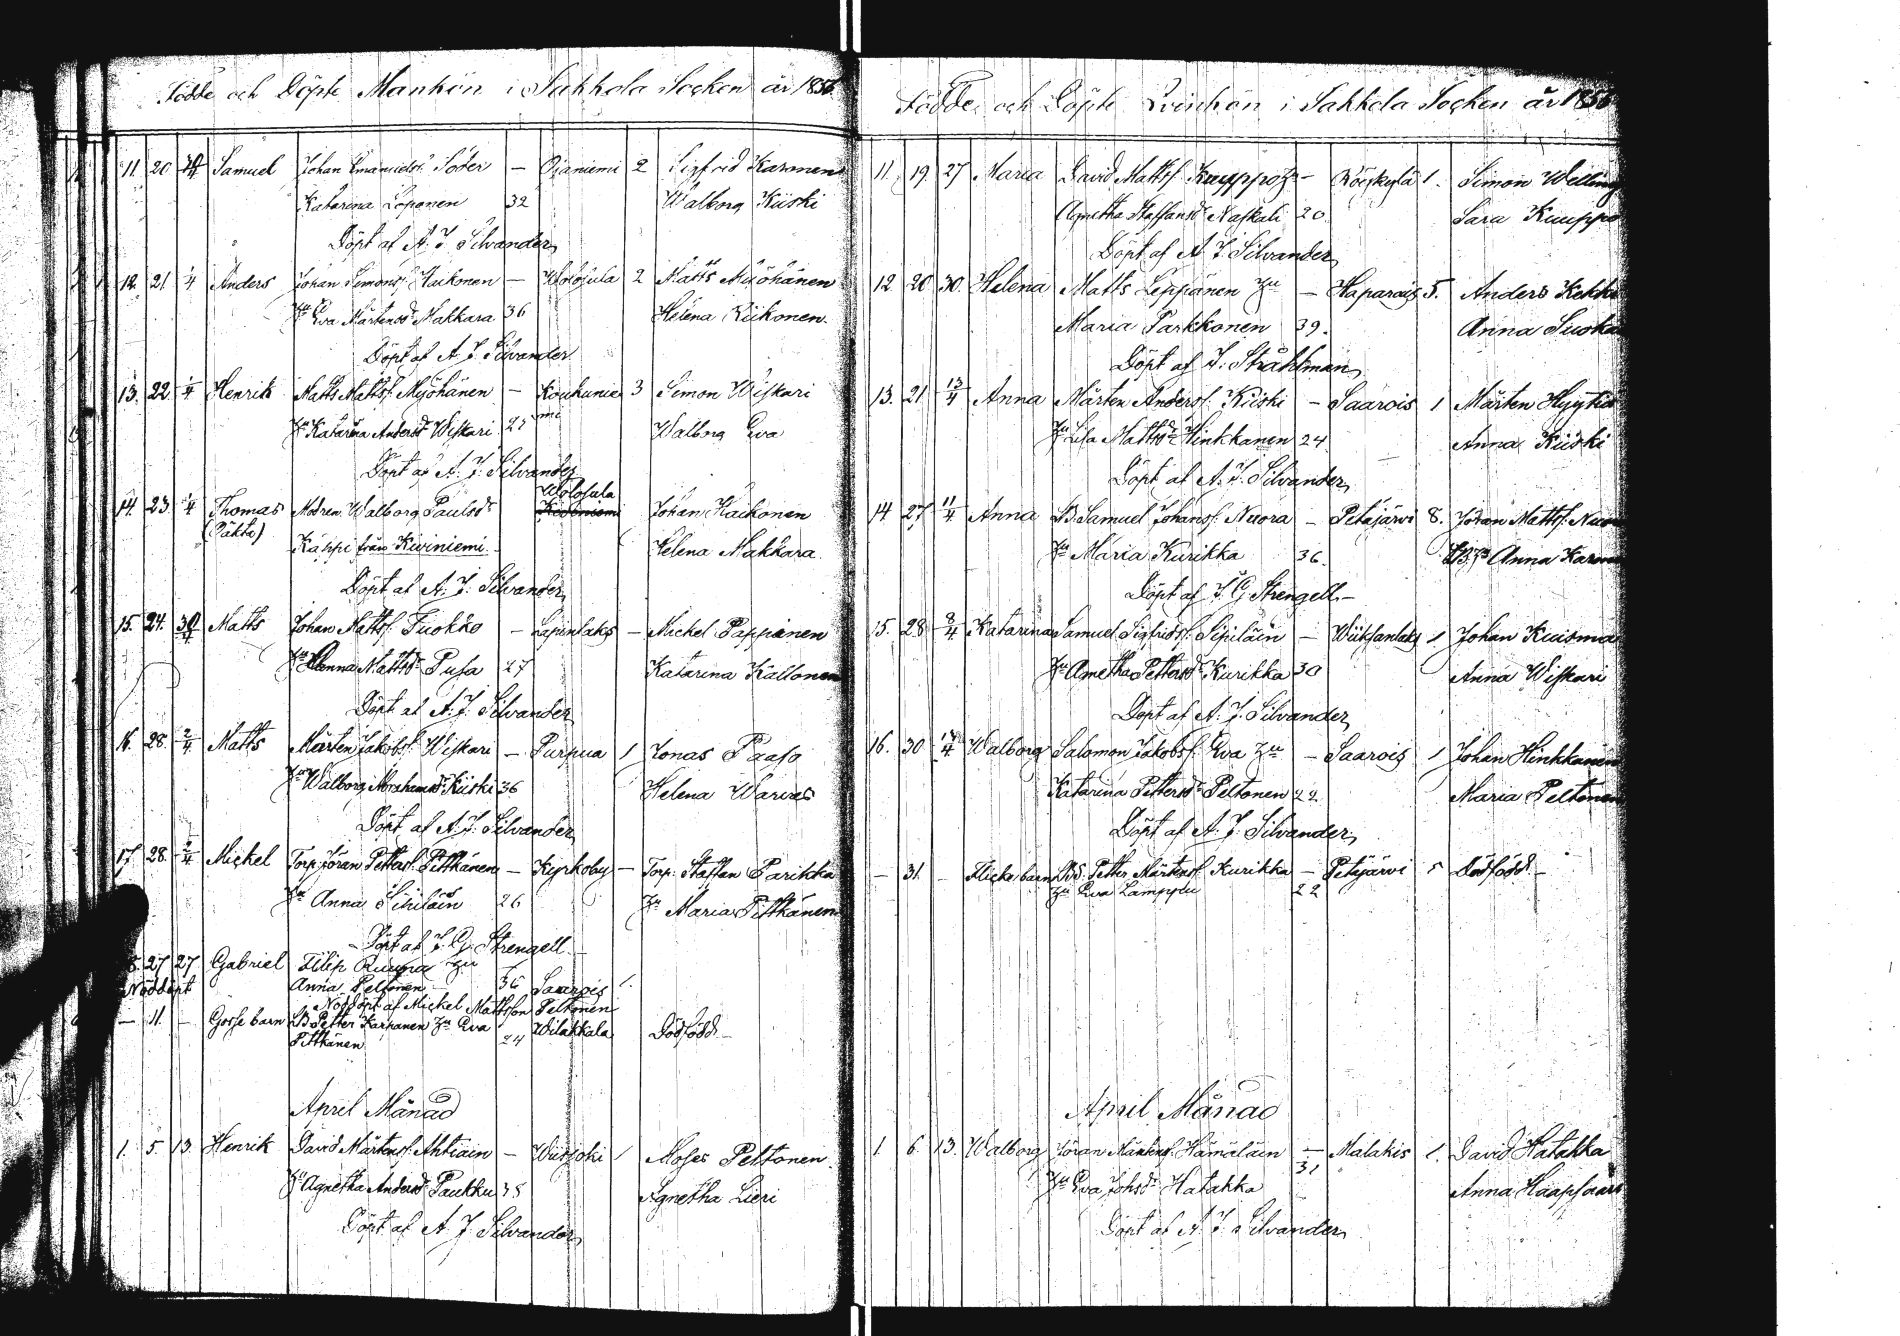 Födde och Döpte Mankön i Sakkola Socken år 1856.
11. 20. Samuel Johan Emanuelss. Söder — Ojaniemi 2 Sigfrid Karonen
Katarina Loponen 32 Walborg Kiiski
Döpt af A. J. Silvander
12. 21. Anders Johan Simonss. Haikonen — Wolojula 2 Matts Myöhänen
Hu Eva Mårtensdr Makkara 36 Helena Kiikonen.
Döpt af A. J. Silvander
13. 22. Henrik Matts Mattss. Myöhänen — 3 Simon Wiskari
Hu Katarina Andersdr Wiskari. 25 Walborg Eva
Döpt af A. J. Silvander
Wolojula
14. 23. Thomas Modren Walborg Paulsdr Kiviniemi Johan Haikonen
(Oäkta) Käppi från Kiviniemi. Helena Makkara
Döpt af A. J. Silvander
15. 24. Matts Johan Mattss. Tuokko — Lapinlaks — Mickel Pappinen
Hu Anna Mattsdr Pusa 27 Katarina Källonen
Döpt af A. J. Silvander
16. 28. 2/4 Matts Mårten Jakobss. Wiskari — Purpua 1 Jonas Paaso
Hu Walborg Abrahamsdr Kiiski 36 Helena Warvas
Döpt af A. J. Silvander
17. 28. 2/4 Mickel Torp. Jöran Petterss. Pitkänen — Kyrkoby — Torp. Staffan Parikka
Hu Anna Sipiläin 26 Hu Maria Pitkänen
Döpt af J. G. Strengell.
18. 27 27 Gabriel Filip Ruuna Hu
Nöddöpt Anna Peltonen 36 Saarois 1.
Nöddöpt af Mickel Mattsson Peltonen
— 11. — Gosse barn B. Petter Karpanen Hu Eva Wilakkala Dödfödd. —
Pitkänen 24
April Månad
1. 5. 13. Henrik David Mårtenss. Ahtiain — Wiisjoki 1 Moses Peltonen.
Hu Agnetha Andersdr Paukku 35 Agnetha Lieri
Döpt af A. J. Silvander
Födde och Döpte Qvinkön i Sakkola Socken år 1856
11. 19. 27 Maria David Mattss. Kuuppo Hu — Röiskylä 1. Simon Welling
Agnetha Staffansdr Naskali 20. Sara Kuuppo
Döpt af A. J. Silvander
12 20 30. Helena Matts Leppänen Hu — Haparais 5. Anders Kekki
Maria Parkkonen 39. Anna Suoka
Döpt af J. Stråhlman
13. 21. 13/4 Anna Mårten Anderss. Kiiski — Saarois 1 Mårten Hyytiä
Hu Lisa Mattsdr Hinkkanen 24. Anna Kiiski
Döpt af A. J. Silvander
14 27 11/4 Anna B. Samuel Johanss. Nuora — Petäjärvi 8. Jöran Mattss. Nuora
Hu Maria Kurikka 36. Anna Karonen
Döpt af J. G. Strengell. —
15. 28 Katarina Samuel Sigfridss. Sipiläin — Wiiksanlaks 1 Johan Kuisma
Hu Agnetha Pettersdr Kurikka 30 Anna Wiskari
Döpt af A. J. Silvander
16. 30 Walborg Salomon Jakobss. Eva Hu — Saarois 1 Johan Hinkkanen
Katarina Pettersdr Peltonen 22. Maria Peltonen
Döpt af A. J. Silvander
— 31. — Flicke barn Petter Mårtenss. Kurikka — Petäjärvi 5 Dödfödd. —
Hu Eva Lamppu 22
April Månad
1. 6. 13. Walborg Jöran Mårtenss. Hämäläin — Malakis 1. David Hatakka
31
Hu Eva Johsdr Hatakka Anna Haapsaari
Döpt af A. J. Silvander